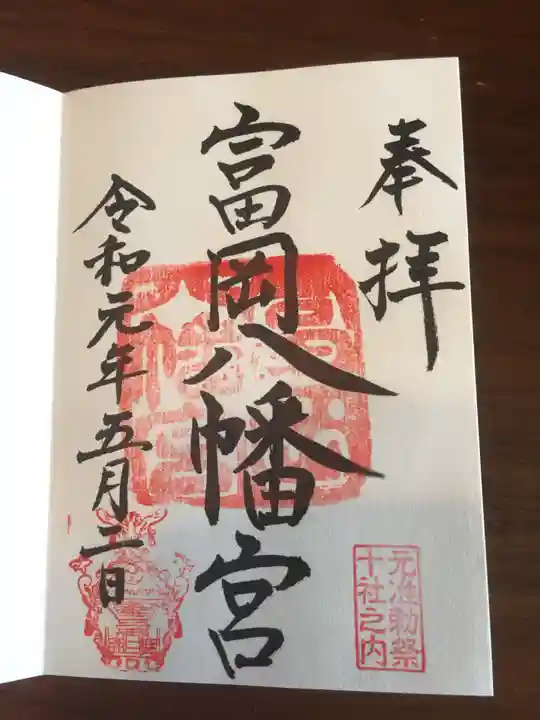 奉拝
富岡八幡宮
令和元年五月二日
元准勅祭
十社之内